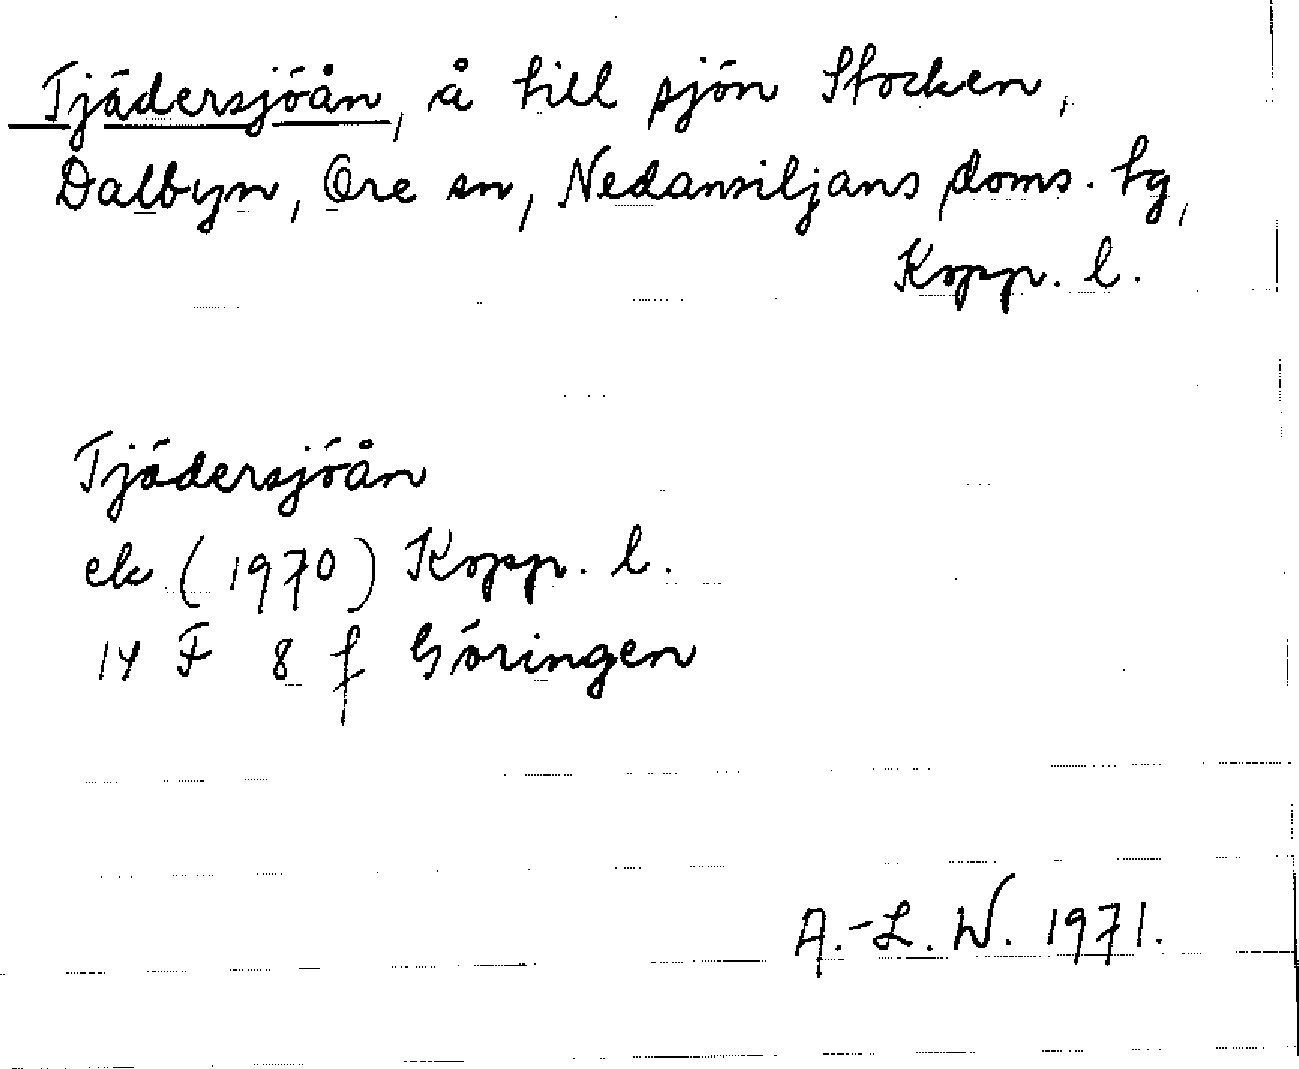 Tjädersjöån, å till sjön Stocken,
Dalbyn, Ore sn, Nedansiljans doms. tg,
Kopp. l.
Tjädersjöån
ek (1970) Kopp. l.
14 F 8 f Göringen
A.-L. W. 1971.